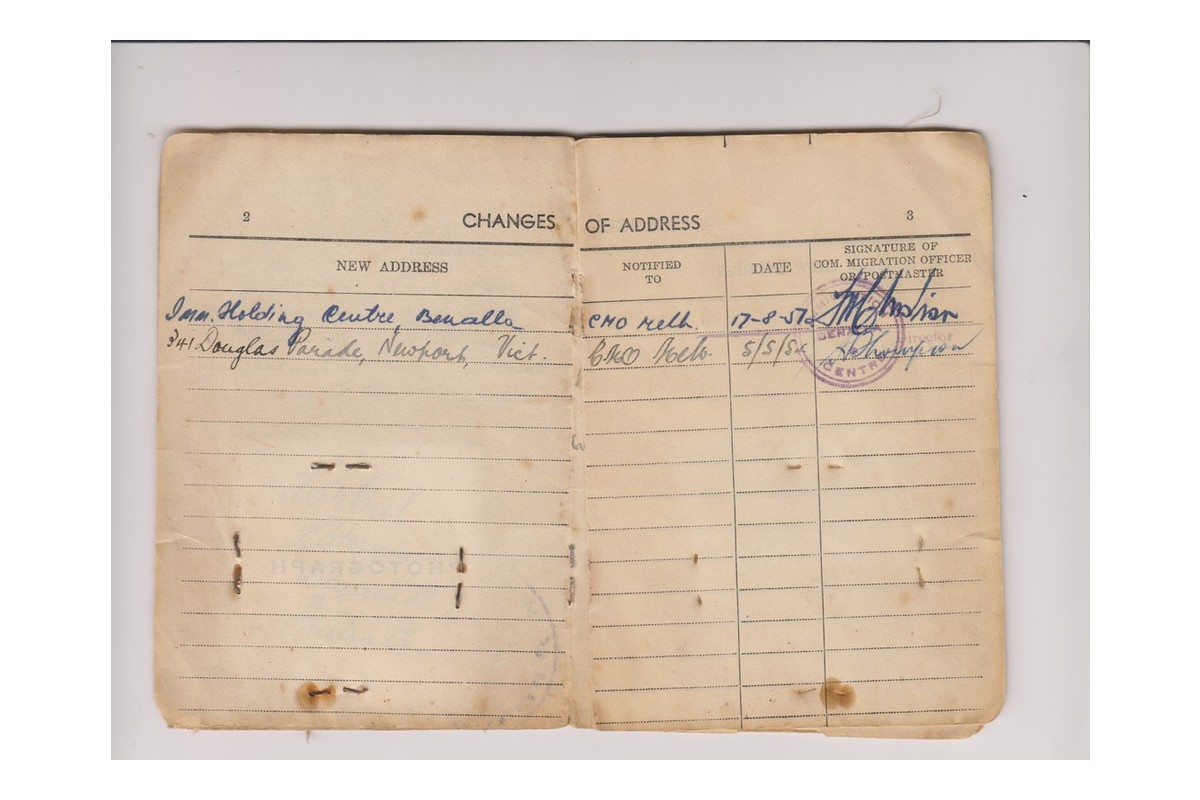 2 CHANGES OF ADDRESS 3
NEW ADDRESS NOTIFIED TO DATE SIGNATURE OF COM. MIGRATION OFFICER OR POSTMASTER
Imm. Holding Centre, Benalla CMO Melb. 17-8-51
341 Douglas Parade, Newport, Vict. CMO Melb. 5/5/5
CENTRE
PHOTOGRAPH